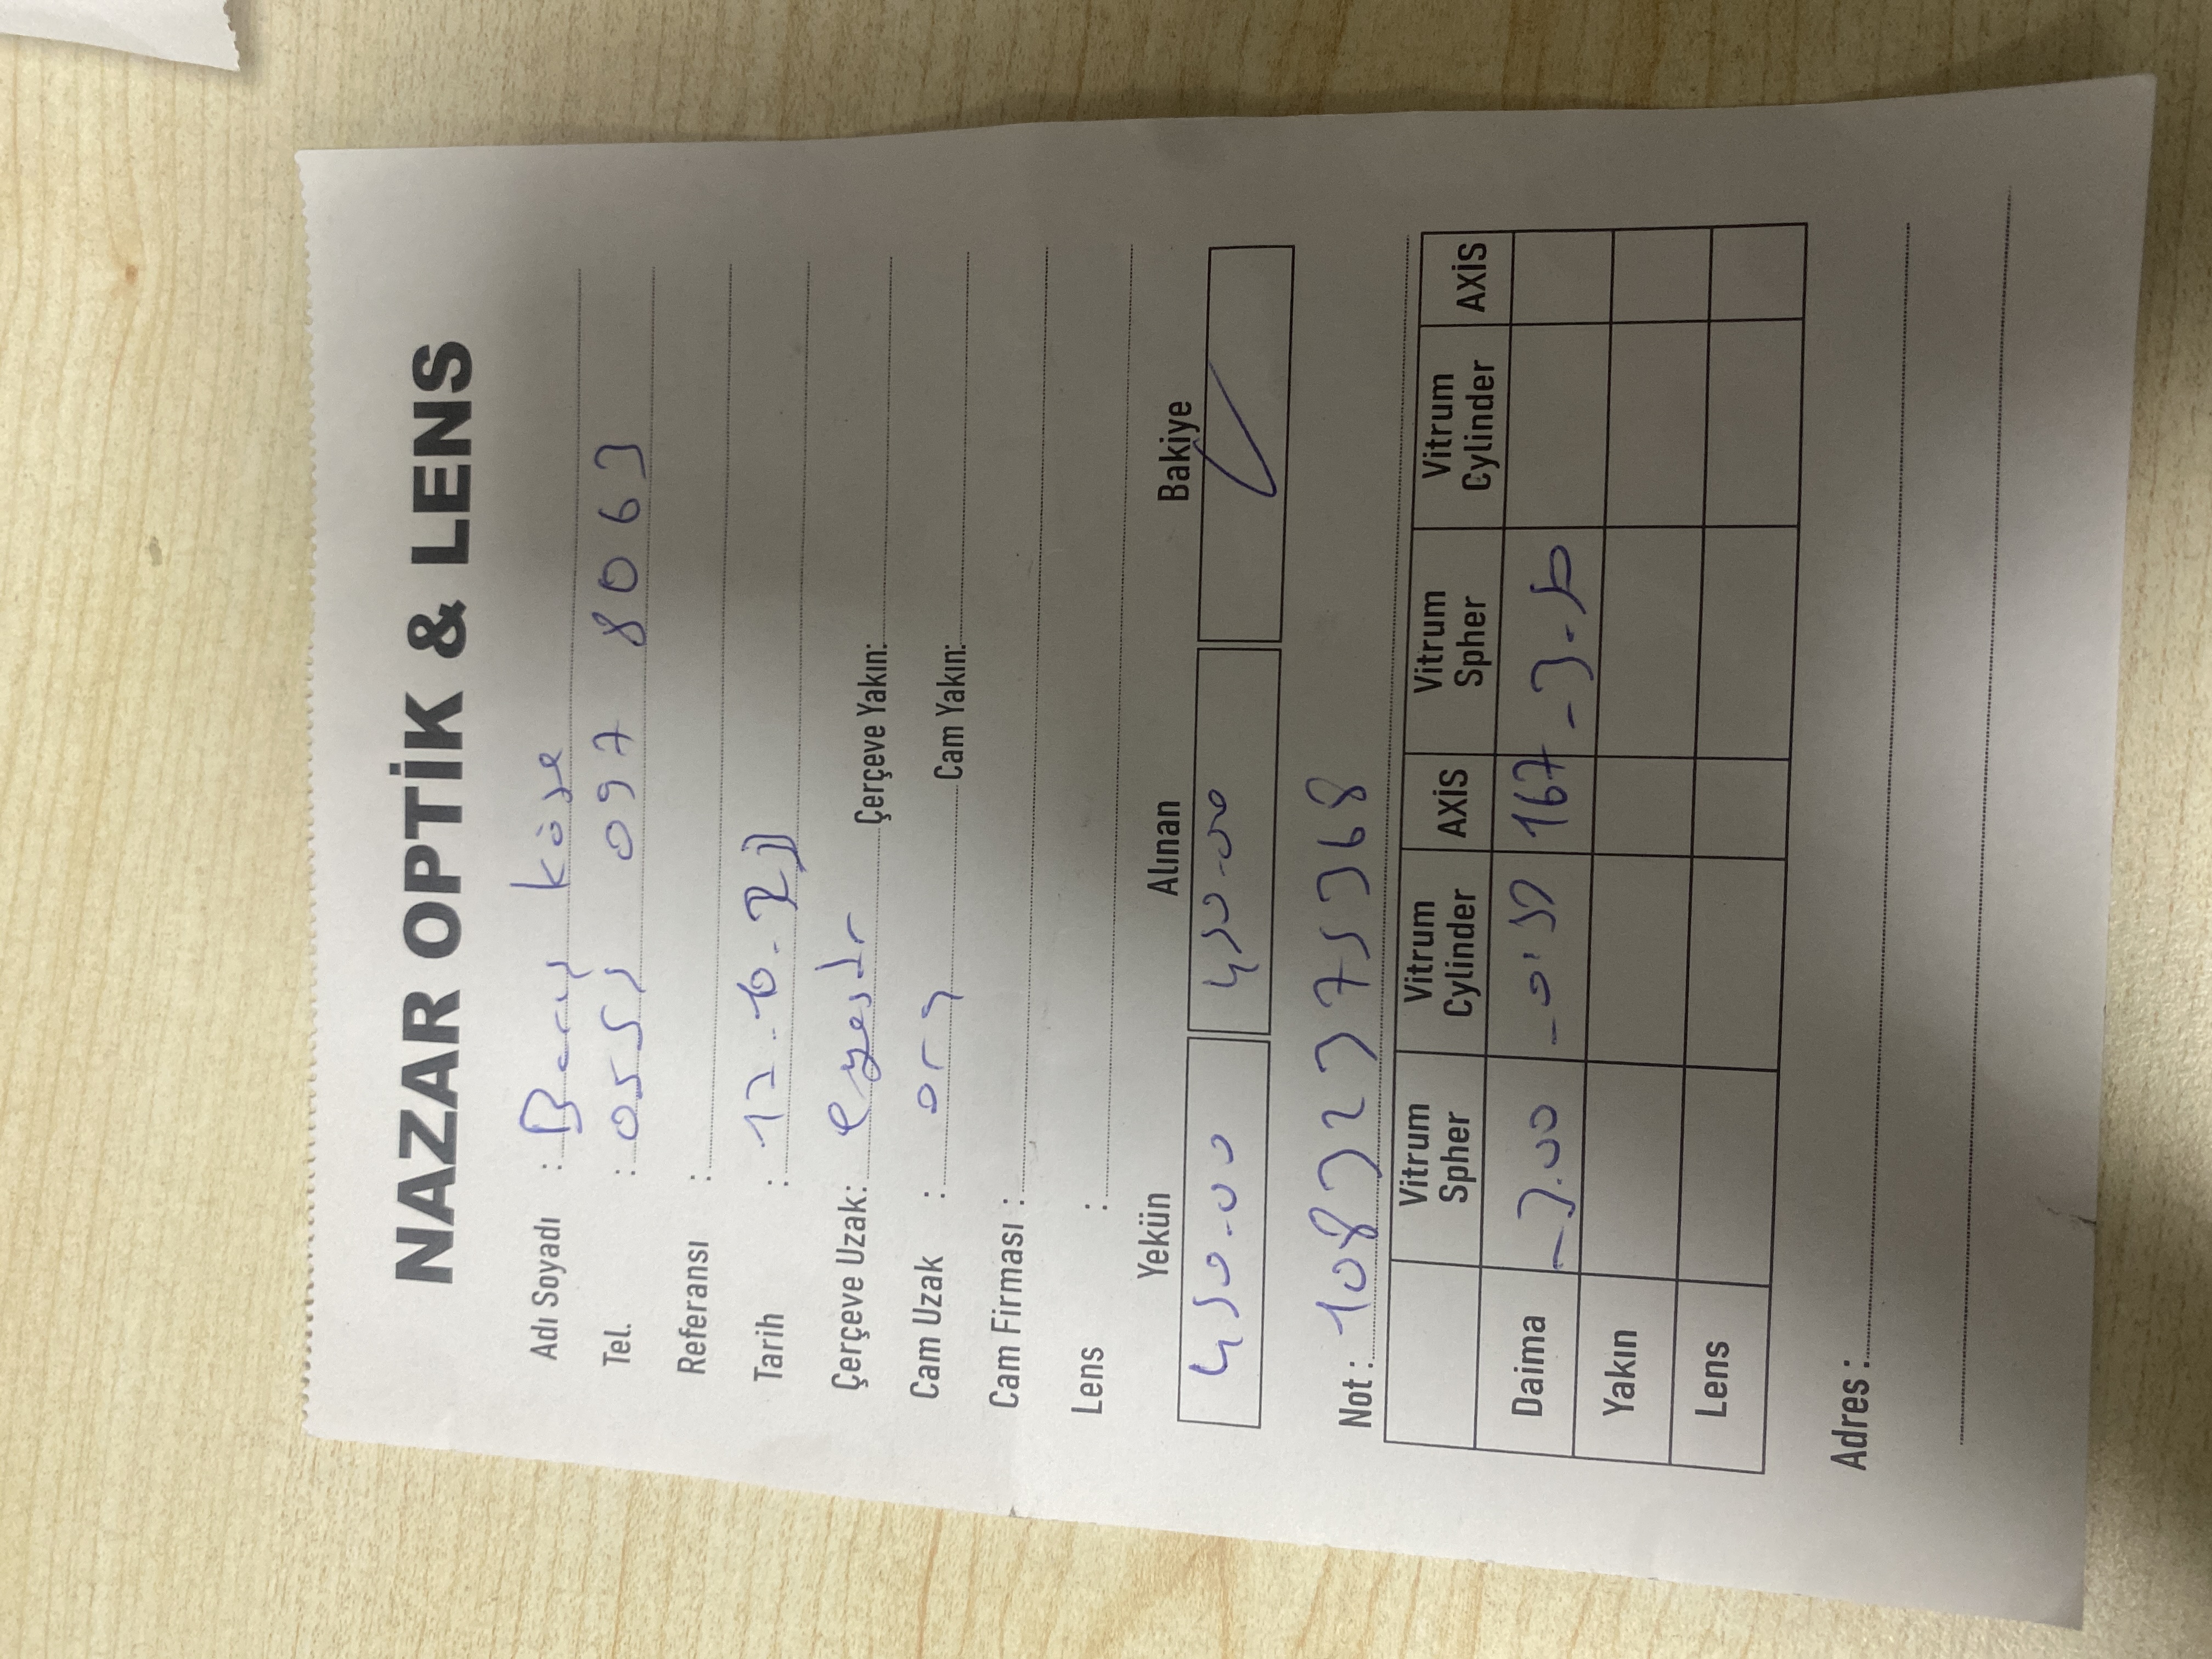 NAZAR OPTİK & LENS
Adı Soyadı : Barış Köse
Tel. : 0555 097 8063
Referansı :
Tarih : 17.10.23
Çerçeve Uzak: Çerçeve Yakın:
Cam Uzak : org Cam Yakın:
Cam Firması :
Lens :
Yekün Alınan Bakiye
450.00 450.00
Not : 10832375368
Vitrum Spher Vitrum Cylinder AXİS Vitrum Spher Vitrum Cylinder AXİS
Daima -3.00 -0.50 167 -3.50
Yakın
Lens
Adres :